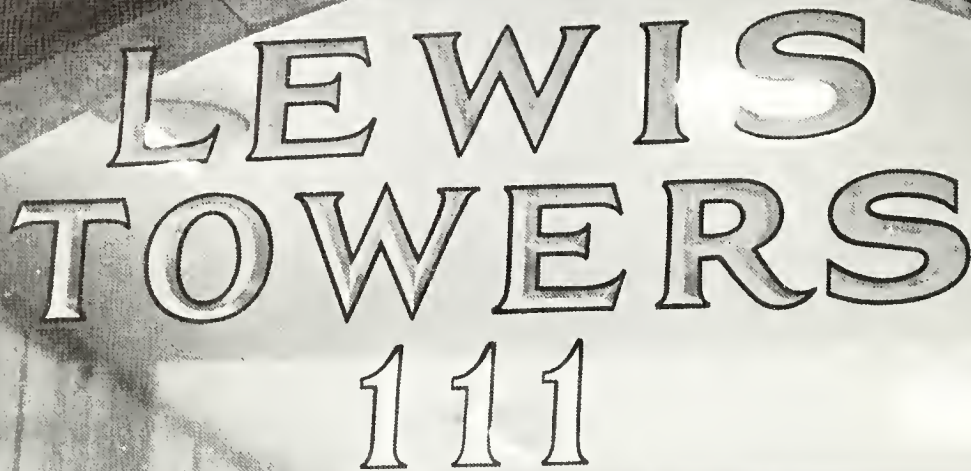 LEWIS
TOWERS
111